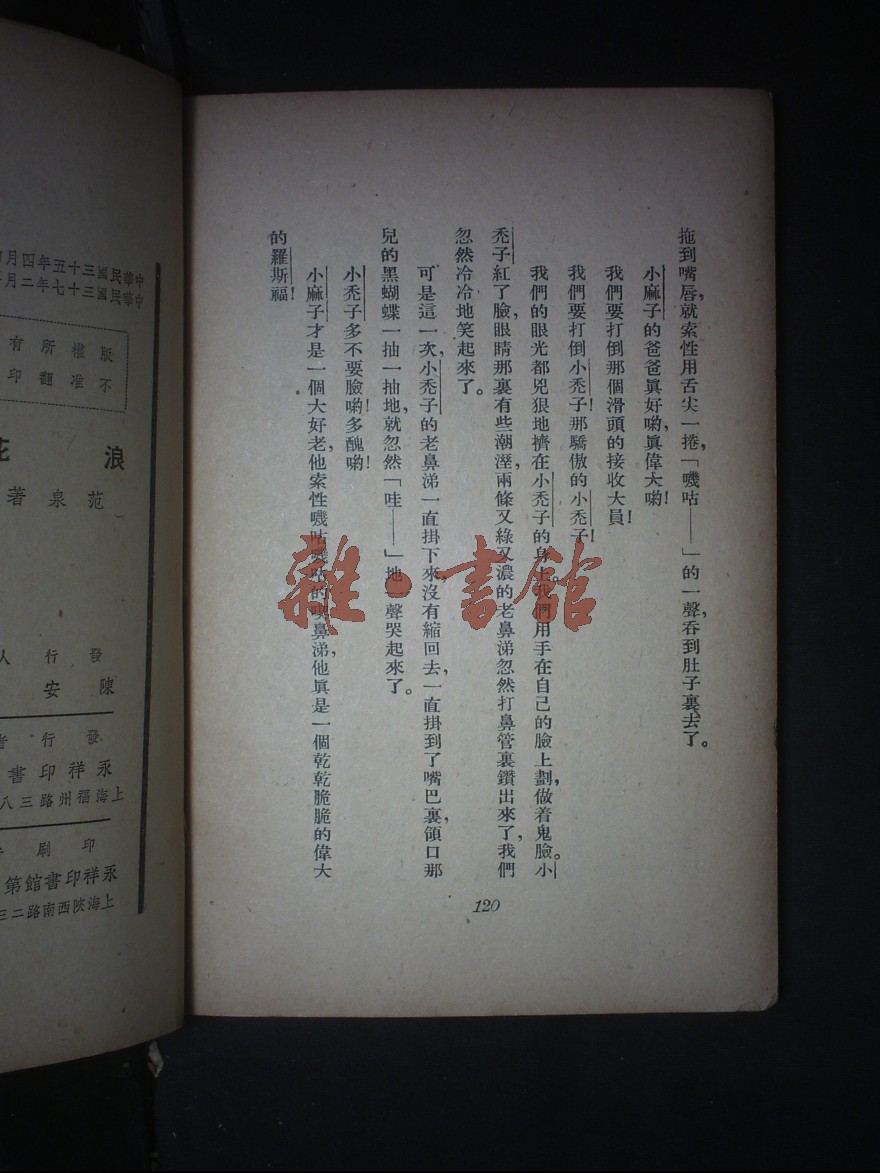 拖到嘴唇，就索性用舌尖一捲，「嘰咕——」的一聲吞到肚子裏去了。
小麻子的爸爸眞好喲，眞偉大喲！
我們要打倒那個滑頭的接收大員！
我們要打倒小禿子！那驕傲的小禿子！
我們的眼光都兇狠地擠在小禿子的身上。我們用手在自己的臉上劃，做着鬼臉。小
禿子紅了臉，眼睛那裏有些潮溼，兩條又綠又濃的老鼻涕忽然打鼻管裏鑽出來了，我們
忽然冷冷地笑起來了。
可是這一次，小禿子的老鼻涕一直掛下來，沒有縮回去，一直掛到了嘴巴裏，領口那
兒的黑蝴蝶一抽一抽地，就忽然「哇——」地一聲哭起來了。
小禿子多不要臉喲！多醜喲！
小麻子才是一個大好老，他索性嘰咕嘰咕的喫鼻涕，他眞是一個乾乾脆脆的偉大
的羅斯福！
120
雜·書館
中華民國三十五年四月
中華民國三十七年二月
版權所有
不准翻印
浪花
范泉著
發行人
陳安
發行者
永祥印書
上海福州路三八
印刷
永祥印書館第
上海陝西南路二三